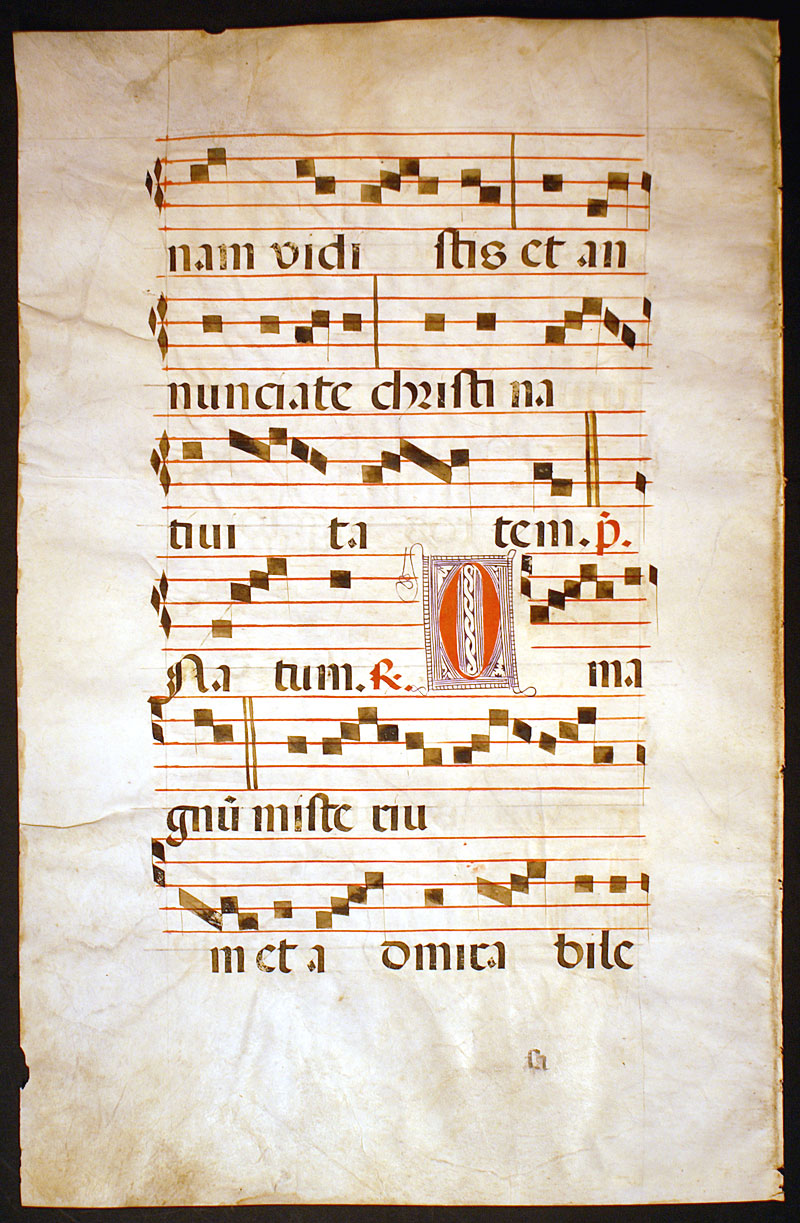 nam vidi stis et an
nunciate christi na
tiui ta tem. p̄.
Na tum. R. O ma
gnū miste riu
m et a dmira bile